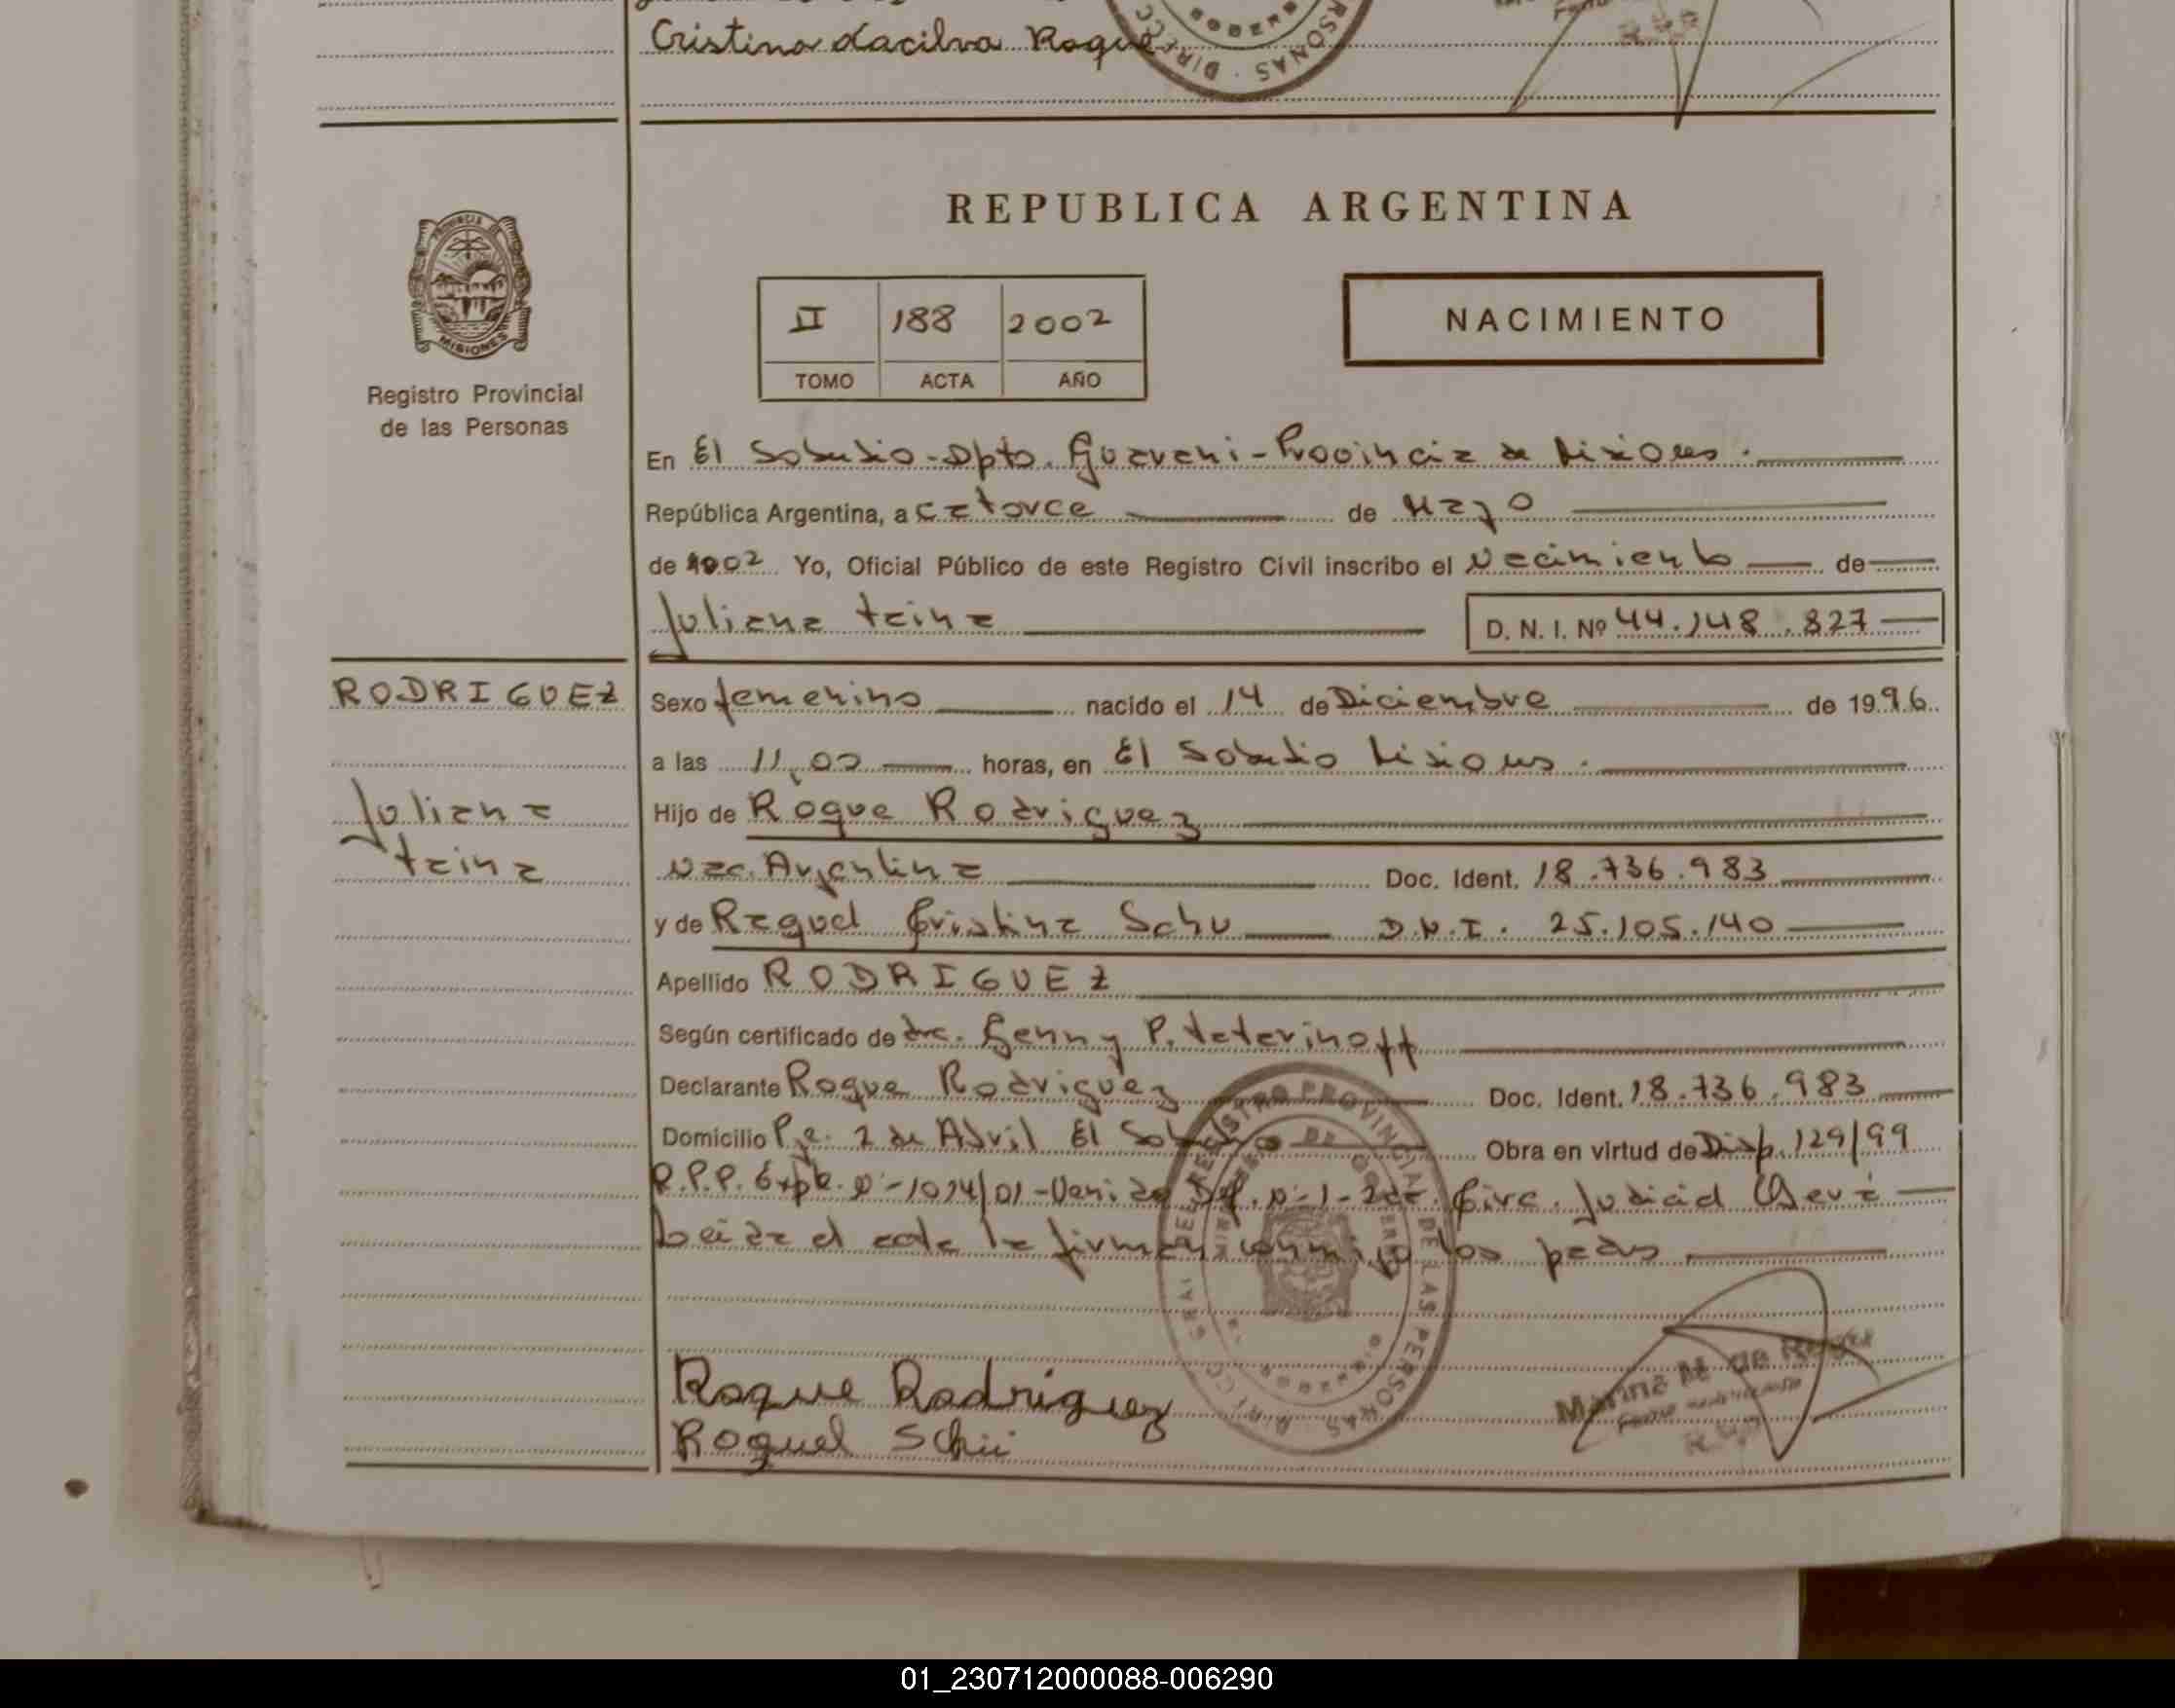 Cristina dacilva Roque
REPUBLICA ARGENTINA
PROVINCIA DE
MISIONES
Registro Provincial
de las Personas
II 188 2002
TOMO ACTA AÑO
NACIMIENTO
En El Soberbio - Dpto. Guarani - Provincia de Misiones.
República Argentina, a catorce de Mayo
de 2002 Yo, Oficial Público de este Registro Civil inscribo el Nacimiento de
Juliana taina
D. N. I. Nº 44.148.827
RODRIGUEZ
Juliana
taina
Sexo femenino nacido el 14 de Diciembre de 1996.
a las 11,00 horas, en El Soberbio Misiones.
Hijo de Roque Rodriguez
Nac. Argentina Doc. Ident. 18.736.983
y de Raquel Cristina Schu D.N.I. 25.105.140
Apellido RODRIGUEZ
Según certificado de dra. Genny P. teterinoff
Declarante Roque Rodriguez Doc. Ident. 18.736.983
Domicilio Pje. 2 de Abril El Soberbio Obra en virtud de Disp. 129/99
R.P.P. Expte. Nº 1014/01 - Def. Nº 1 - 2da. Circ. Judicial Oberá
Leida el acta la firman conmigo los padres
REGISTRO PROVINCIAL DE LAS PERSONAS
Roque Rodriguez
Roquel Schü
Marina M. de
R.P.P.
01_230712000088-006290